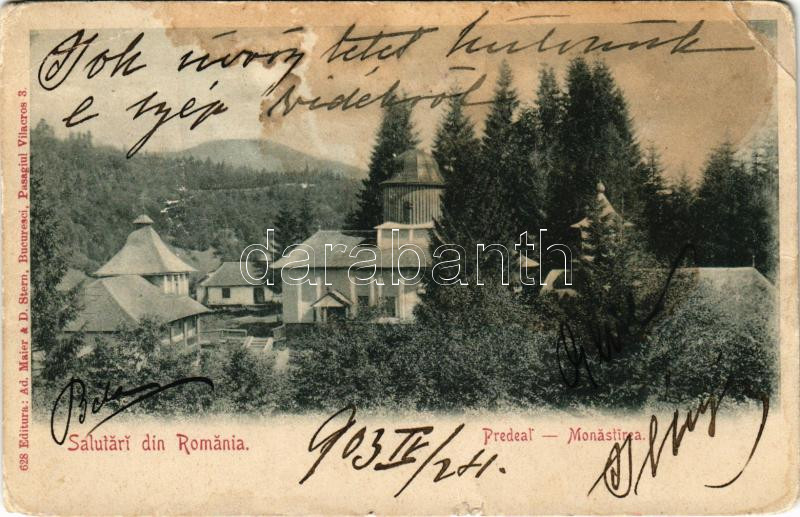 Sok üdvözletet küldünk
e szép vidékről
darabanth.com
Béla
Salutări din România.
903 IV/24.
Predeal — Monăstirea.
628 Editura: Ad. Maier & D. Stern, Bucuresci, Pasagiul Vilacros 3.